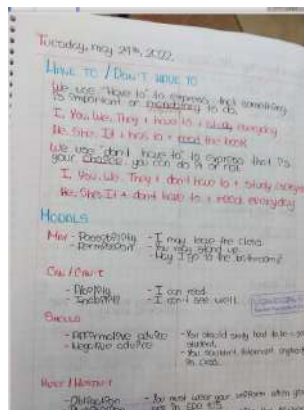 Tuesday, may 24th, 2022.
HAVE TO / DON'T HAVE TO
We use "Have to" to express that something
is important or mandatory to do.
I, You, We, They + have to + study everyday
He, She, It + has to + read the book
We use "don't have to" to express that is
your choice, you can do it or not
I, You, We, They + don't have to + study
He, She, It + don't have to + read everyday
MODALS
May - Possibility - I may leave the class.
- Permission - You may stand up.
- May I go to the bathroom?
CAN / CAN'T
- Ability - I can read.
- Inability - I can't see well.
SHOULD
- Affirmative advice - You should study hard to be a good
student.
- Negative advice - You shouldn't
in class.
MUST / MUSTN'T
- Obligation - You must wear your uniform when you